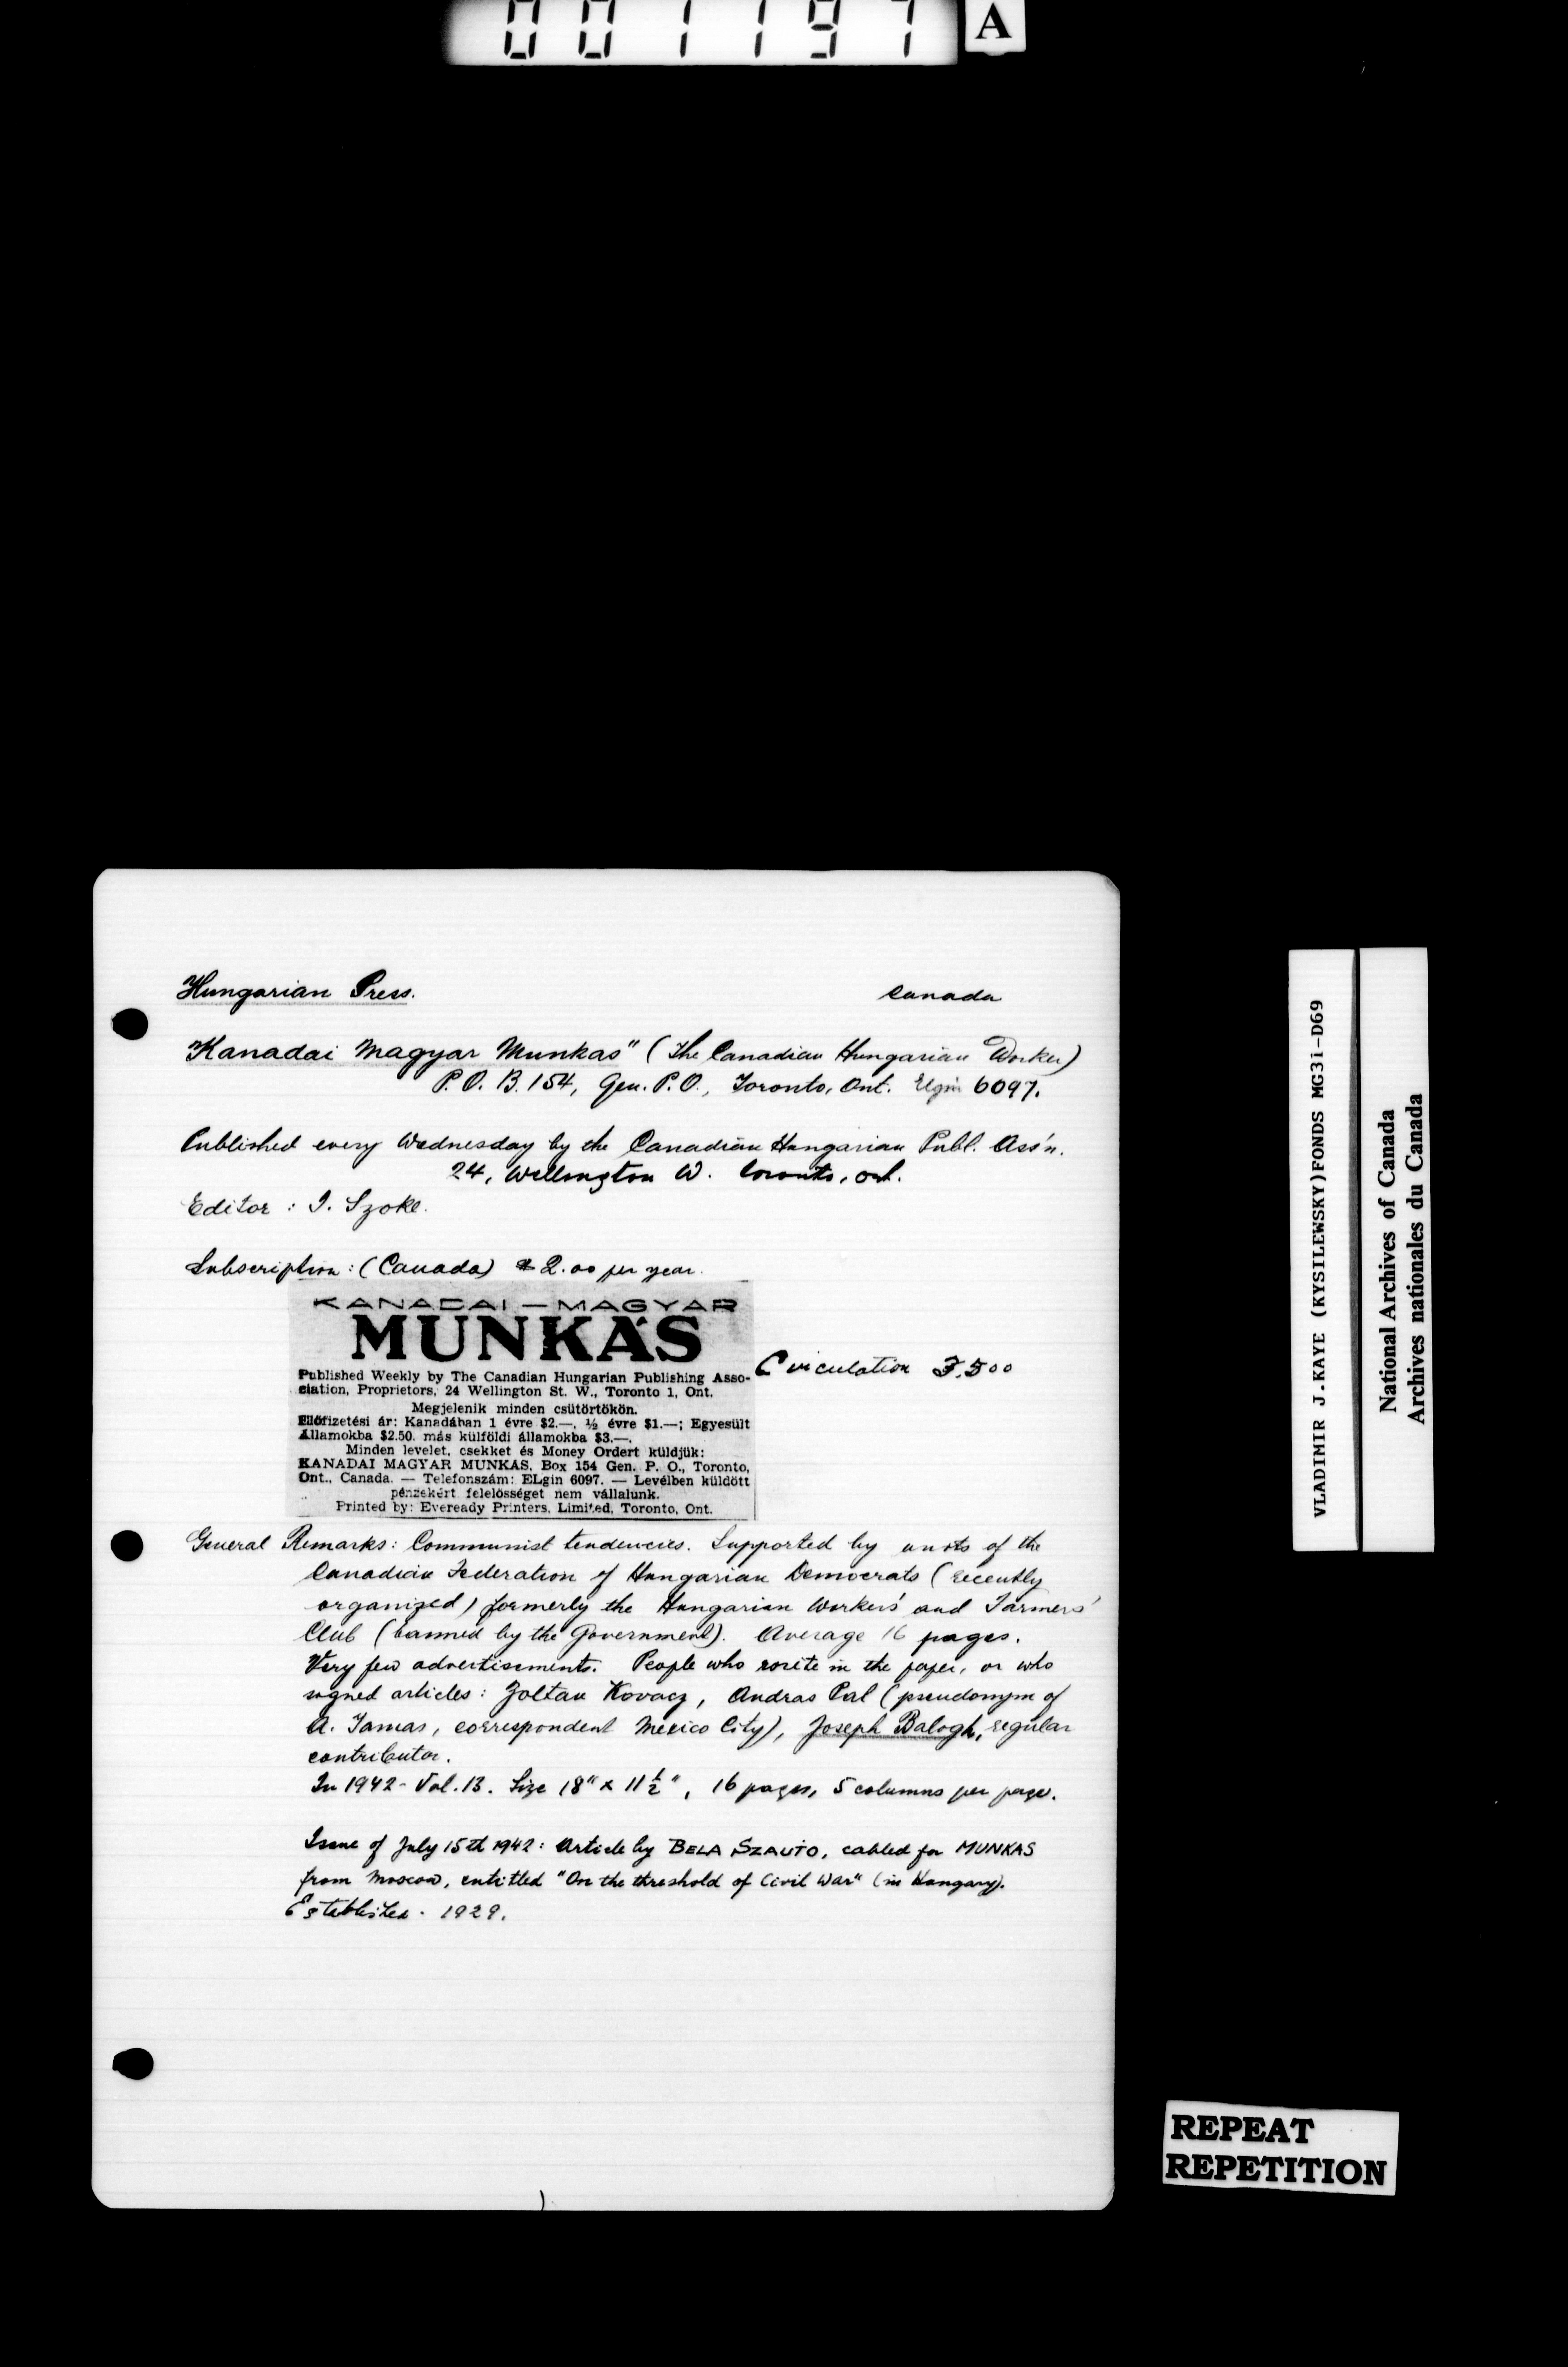 001197
A
Hungarian Press.
Canada
"Kanadai Magyar Munkas" (The Canadian Hungarian Worker)
P.O.B. 154, Gen. P.O., Toronto, Ont. Elgin 6097.
Published every Wednesday by the Canadian Hungarian Publ. Ass'n.
24, Wellington W. Toronto, Ont.
Editor : I. Szoke.
Subscription : (Canada) $2.00 per year.
KANADAI-MAGYAR
MUNKÁS
Published Weekly by The Canadian Hungarian Publishing Asso-
ciation, Proprietors, 24 Wellington St. W., Toronto 1, Ont.
Megjelenik minden csütörtökön.
Előfizetési ár: Kanadában 1 évre $2.—, ½ évre $1.—; Egyesült
Államokba $2.50, más külföldi államokba $3.—.
Minden levelet, csekket és Money Ordert küldjük:
KANADAI MAGYAR MUNKAS, Box 154 Gen. P. O., Toronto,
Ont., Canada. — Telefonszám: ELgin 6097. — Levélben küldött
pénzekért felelösséget nem vállalunk.
Printed by: Eveready Printers, Limited, Toronto, Ont.
Circulation
General Remarks: Communist tendencies. Supported by units of the
Canadian Federation of Hungarian Democrats (recently
organized) formerly the Hungarian Workers' and Farmers'
Club (banned by the Government). Average 16 pages.
Very few advertisements. People who wrote in the paper, or who
signed articles: Zoltan Kovacz, Andras Pal (pseudonym of
A. Tamas, correspondent Mexico City), Joseph Balogh, regular
contributor.
In 1942 - Vol. 13. Size 18" x 11½", 16 pages, 5 columns per page.
Issue of July 15th 1942: Article by BELA SZANTO, cabled for MUNKAS
from Moscow, entitled "On the threshold of Civil War" (in Hungary).
Established - 1929.
VLADIMIR J.KAYE (KYSILEWSKY)FONDS MG3i-D69
National Archives of Canada
Archives nationales du Canada
REPEAT
REPETITION